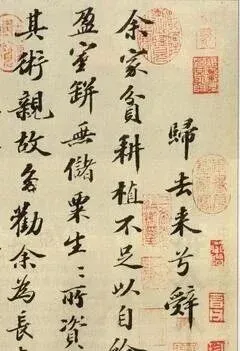 歸去来兮辤
余家貧耕植不足以自給
盈室缾無儲粟生〻所資
其術親故多勸余為長